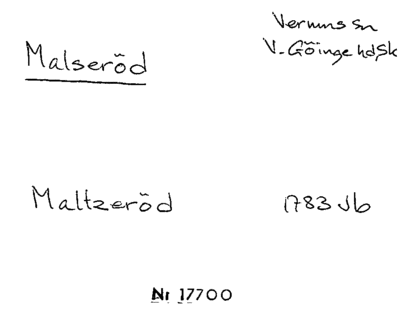 Malseröd
Verums sn
V. Göinge hd, Sk
Maltzeröd
1783 Jb
Nr 17700